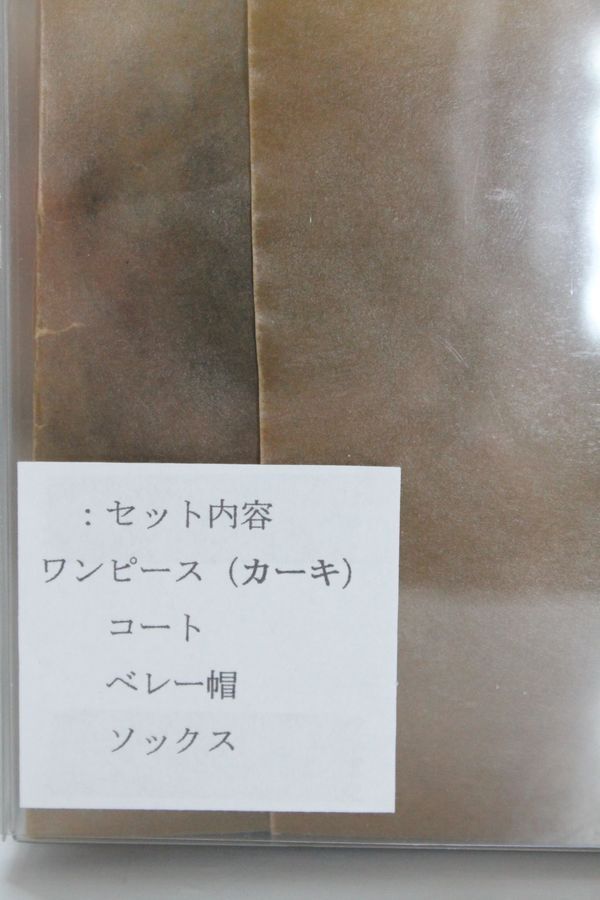 ：セット内容
ワンピース（カーキ）
コート
ベレー帽
ソックス